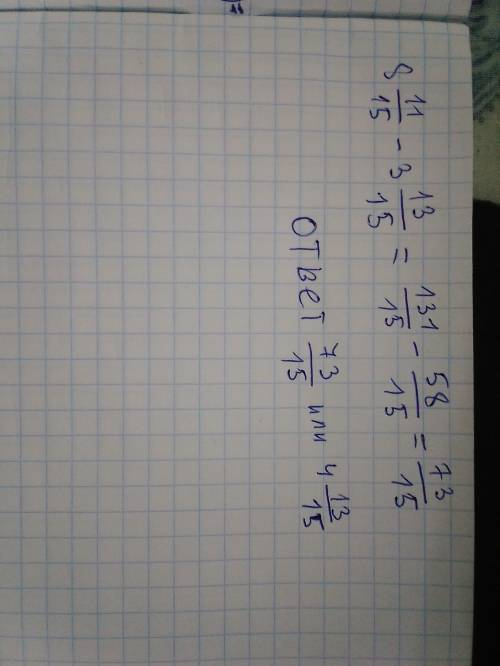 8 11/15 - 3 13/15 = 131/15 - 58/15 = 73/15
ответ 73/15 или 4 13/15